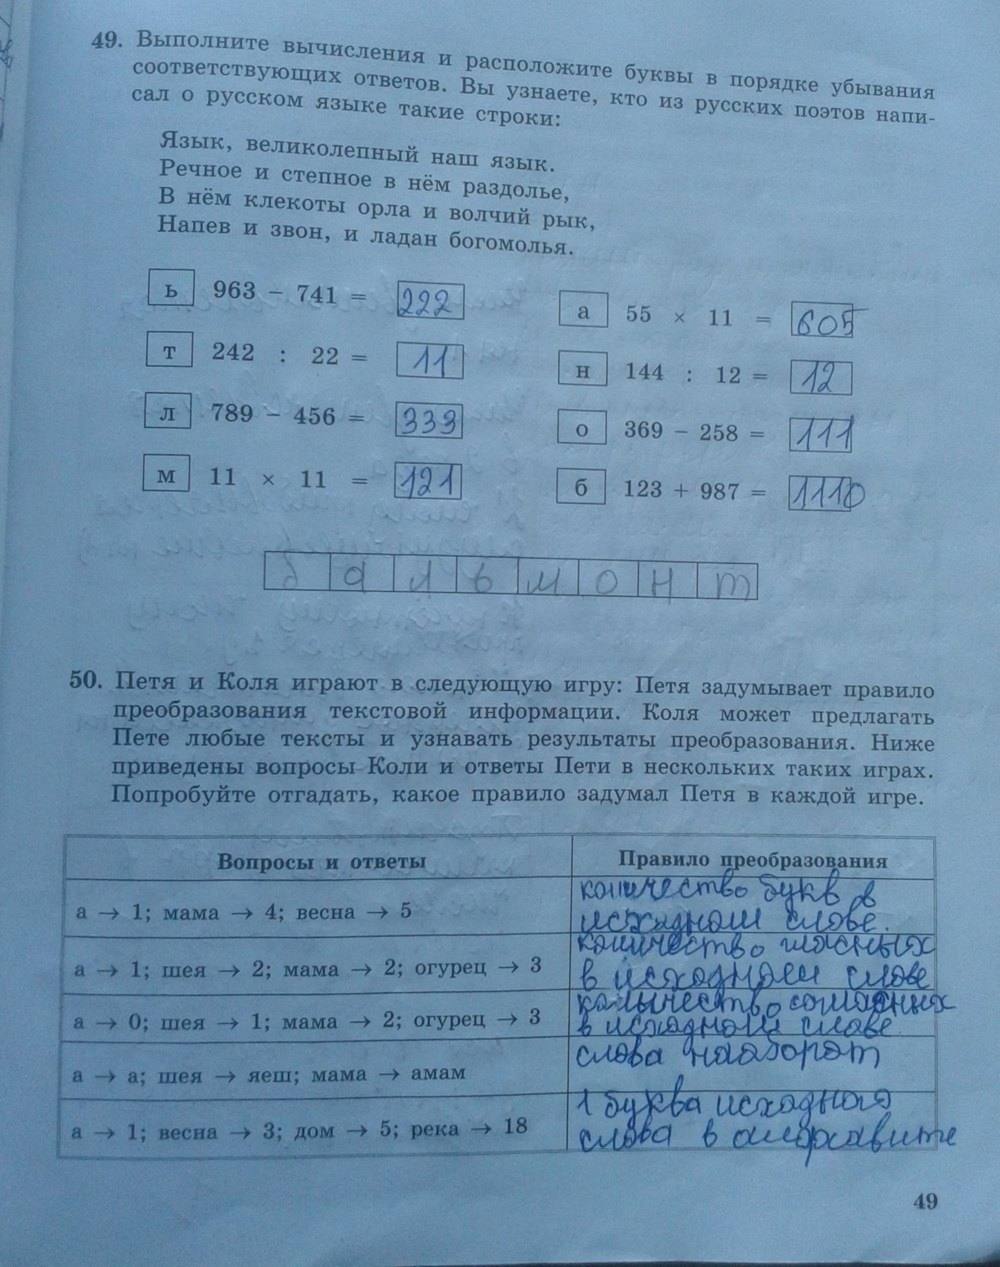 49. Выполните вычисления и расположите буквы в порядке убывания
соответствующих ответов. Вы узнаете, кто из русских поэтов напи-
сал о русском языке такие строки:
Язык, великолепный наш язык.
Речное и степное в нём раздолье,
В нём клекоты орла и волчий рык,
Напев и звон, и ладан богомолья.
ь 963 − 741 = 222
а 55 × 11 = 605
т 242 : 22 = 11
н 144 : 12 = 12
л 789 − 456 = 333
о 369 − 258 = 111
м 11 × 11 = 121
б 123 + 987 = 1110
б а л ь м о н т
50. Петя и Коля играют в следующую игру: Петя задумывает правило
преобразования текстовой информации. Коля может предлагать
Пете любые тексты и узнавать результаты преобразования. Ниже
приведены вопросы Коли и ответы Пети в нескольких таких играх.
Попробуйте отгадать, какое правило задумал Петя в каждой игре.
Вопросы и ответы
Правило преобразования
а → 1; мама → 4; весна → 5
количество букв в
исходном слове.
а → 1; шея → 2; мама → 2; огурец → 3
количество гласных
в исходном слове
а → 0; шея → 1; мама → 2; огурец → 3
колычество согласных
в исходном слове
а → а; шея → яеш; мама → амам
слова наоборот
а → 1; весна → 3; дом → 5; река → 18
1 буква исходного
слова в алфавите
49